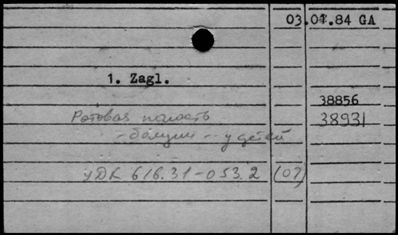 03.01.84 GA
1. Zagl.
38856
Ротовая полость 38931
- у детей
УДК 616.31-053.2 (02)